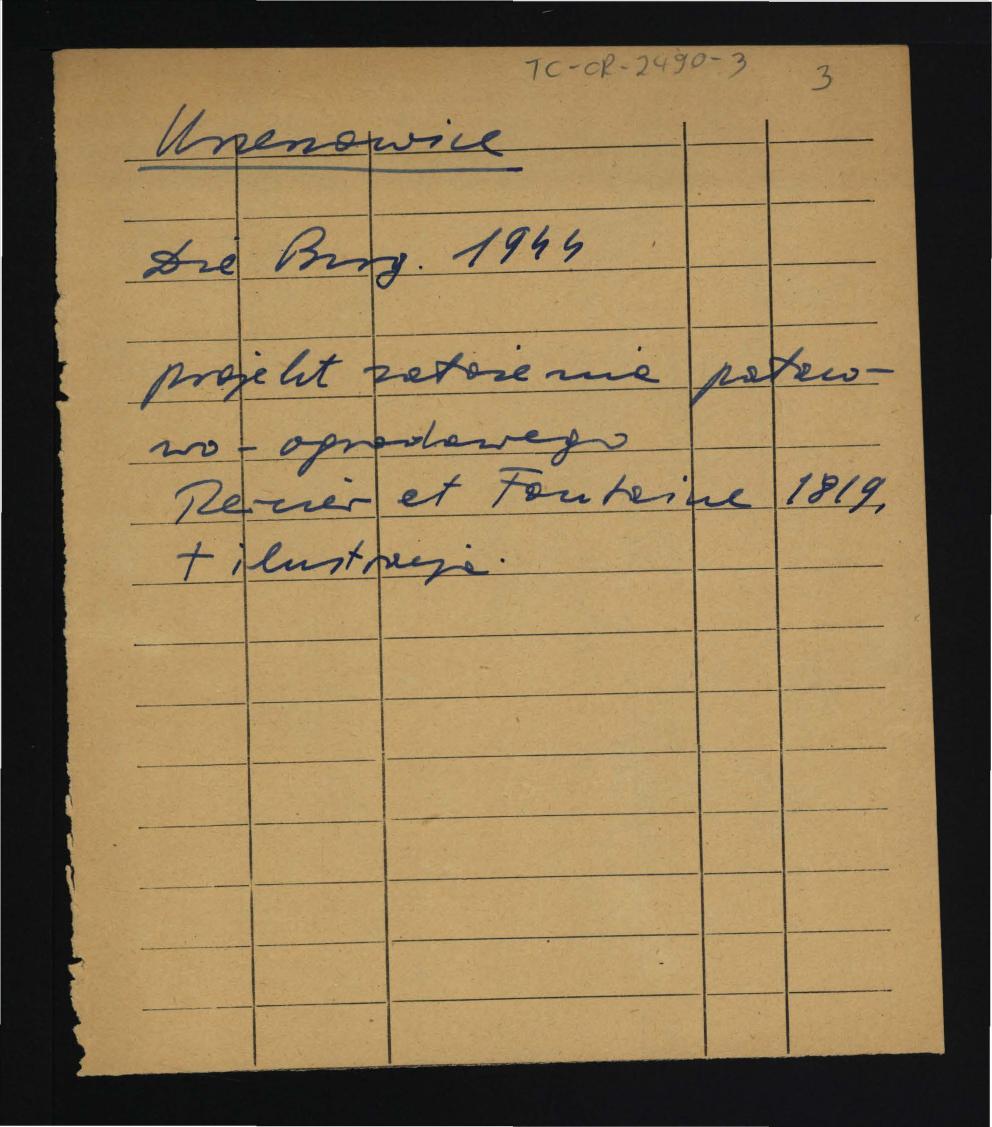 TC-CR-2490-3 3
Ursynowice
Die Burg. 1944
projekt założenia pałaco-
wo-ogrodowego
Percier et Fontaine 1819,
+ ilustracja.